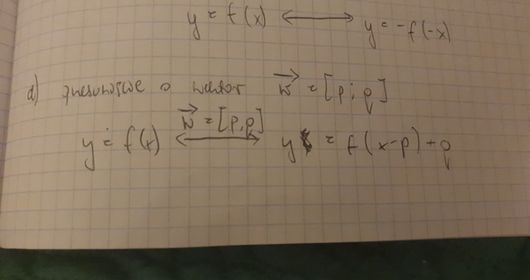 y = f(x) ⟷ y = -f(-x)
d) przesunięcie o wektor w⃗ = [p; q]
w⃗ = [p, q]
y = f(x) ⟷ y = f(x-p) + q